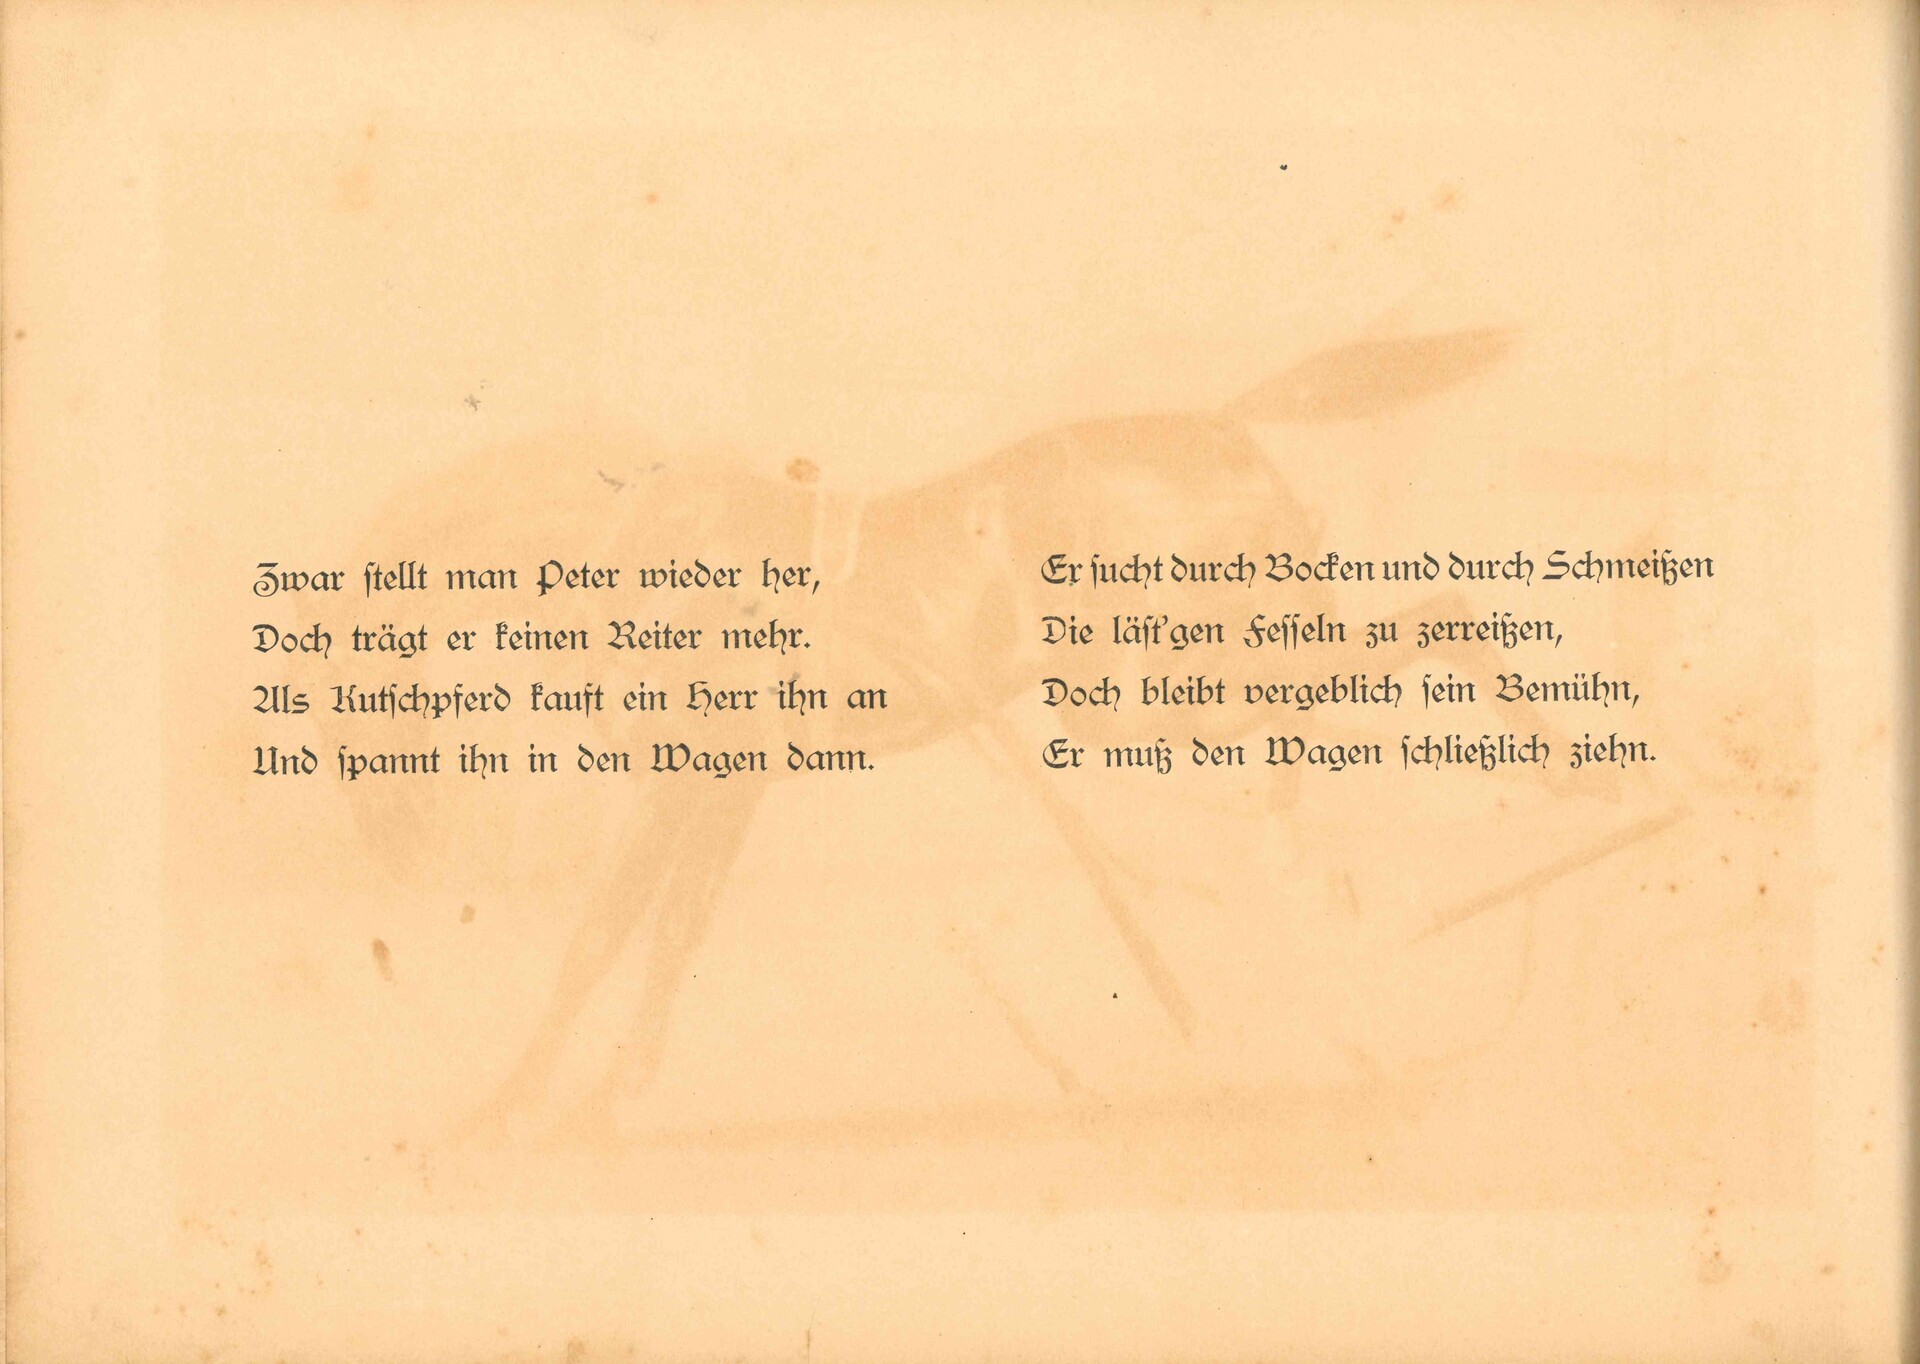 Zwar stellt man Peter wieder her,
Doch trägt er keinen Reiter mehr.
Als Kutschpferd kauft ein Herr ihn an
Und spannt ihn in den Wagen dann.
Er sucht durch Bocken und durch Schmeißen
Die läst'gen Fesseln zu zerreißen,
Doch bleibt vergeblich sein Bemühn,
Er muß den Wagen schließlich ziehn.